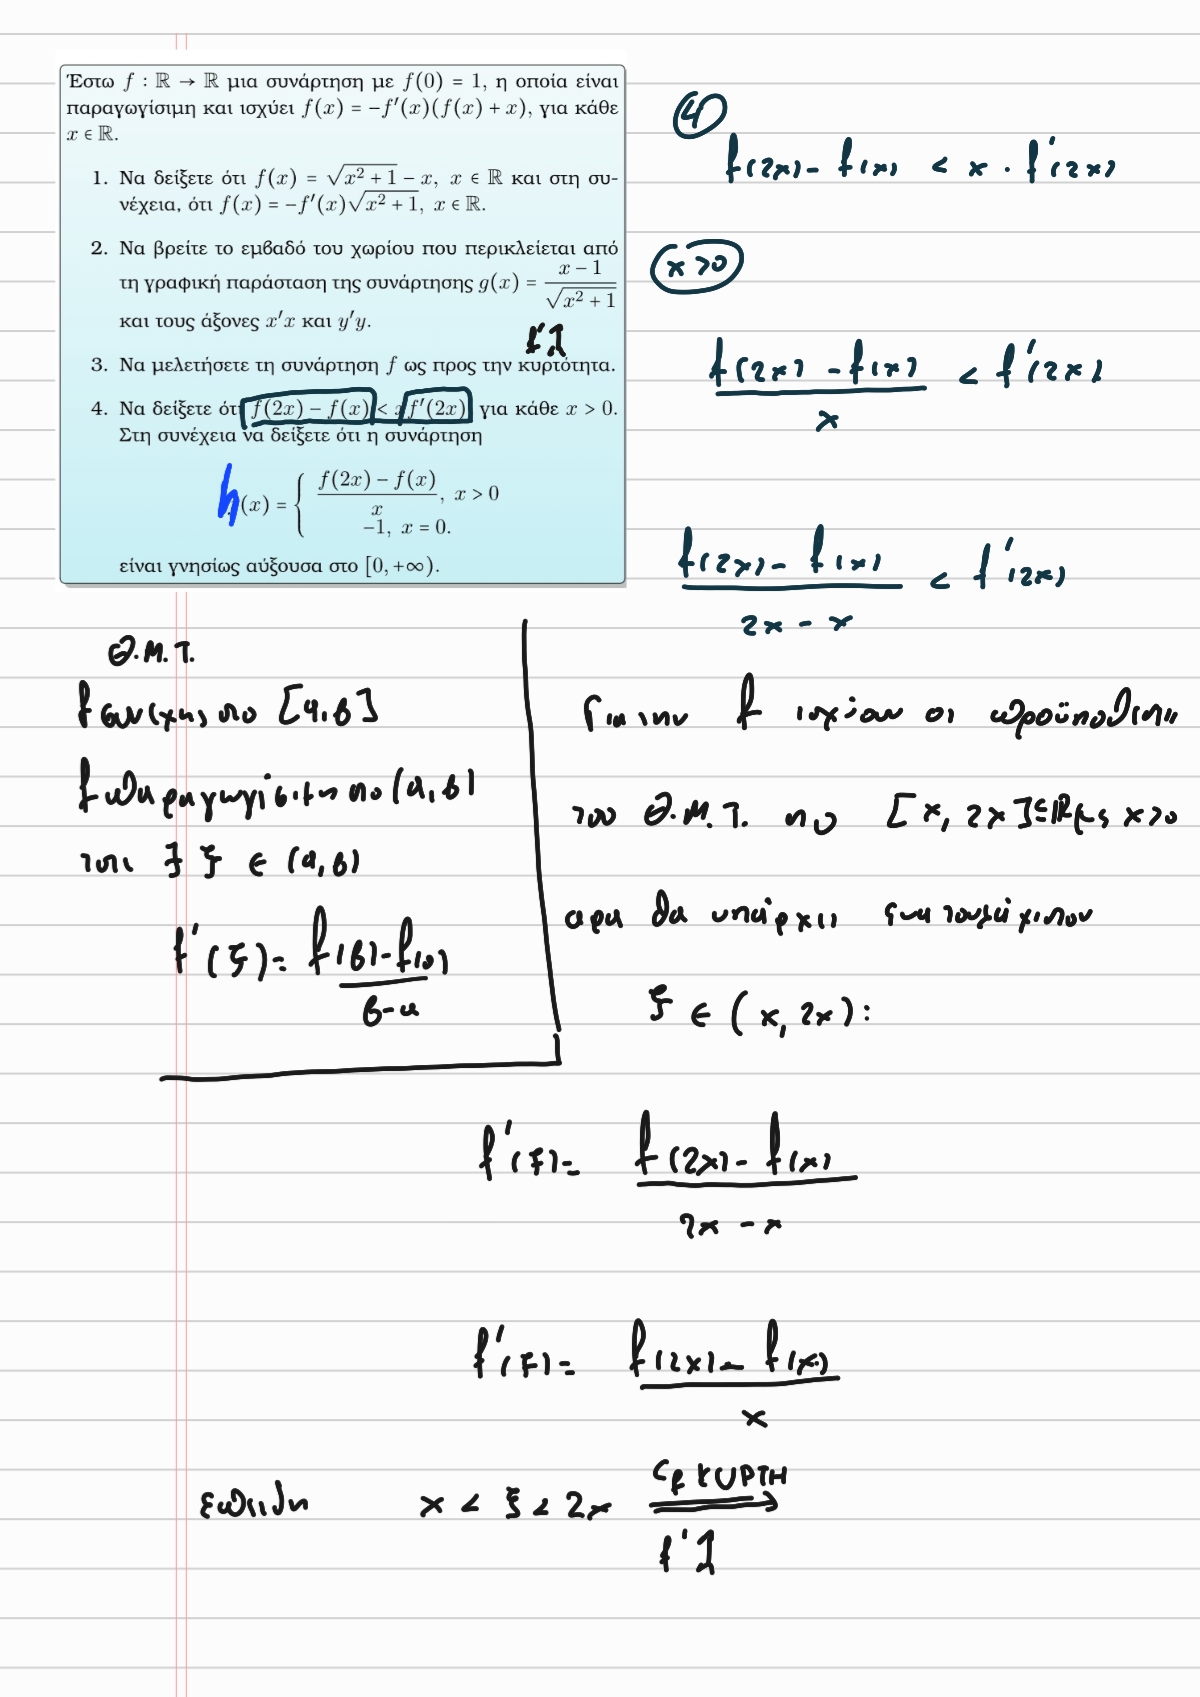 Έστω f : ℝ → ℝ μια συνάρτηση με f(0) = 1, η οποία είναι
παραγωγίσιμη και ισχύει f(x) = −f′(x)(f(x) + x), για κάθε
x ∈ ℝ.
1. Να δείξετε ότι f(x) = √(x² + 1) − x, x ∈ ℝ και στη συ-
νέχεια, ότι f(x) = −f′(x)√(x² + 1), x ∈ ℝ.
2. Να βρείτε το εμβαδό του χωρίου που περικλείεται από
τη γραφική παράσταση της συνάρτησης g(x) = (x − 1)/√(x² + 1)
και τους άξονες x′x και y′y.
f′↑
3. Να μελετήσετε τη συνάρτηση f ως προς την κυρτότητα.
4. Να δείξετε ότι f(2x) − f(x) < x f′(2x) για κάθε x > 0.
Στη συνέχεια να δείξετε ότι η συνάρτηση
h(x) = { (f(2x) − f(x))/x, x > 0
−1, x = 0.
είναι γνησίως αύξουσα στο [0, +∞).
④
f(2x) - f(x) < x · f′(2x)
x > 0
(f(2x) - f(x))/x < f′(2x)
(f(2x) - f(x))/(2x - x) < f′(2x)
Θ.Μ.Τ.
f συνεχης στο [α,β]
f παραγωγίσιμη στο (α,β)
τοτε ∃ ξ ∈ (α,β)
f′(ξ) = (f(β) - f(α))/(β-α)
Για την f ισχύουν οι προϋποθέσεις
του Θ.Μ.Τ. στο [x, 2x] ⊆ ℝ με x>0
αρα θα υπάρχει ενα τουλάχιστον
ξ ∈ (x, 2x):
f′(ξ) = (f(2x) - f(x))/(2x - x)
f′(ξ) = (f(2x) - f(x))/x
επειδη x < ξ < 2x ⟹ Cf ΚΥΡΤΗ
f′↑